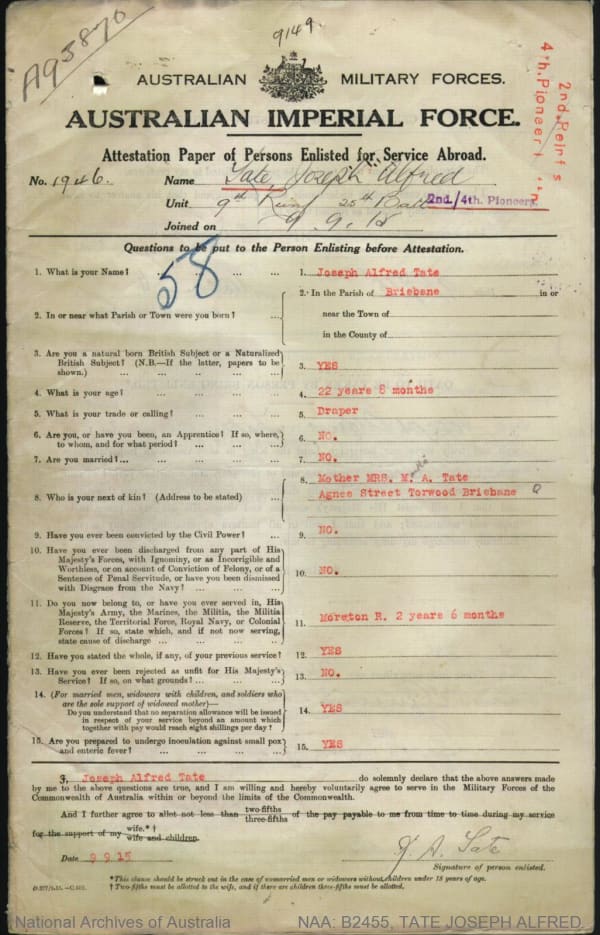 A93870
9149.
2nd. Reinfs
4th. Pioneer
AUSTRALIAN MILITARY FORCES.
AUSTRALIAN IMPERIAL FORCE.
Attestation Paper of Persons Enlisted for Service Abroad.
No. 1946. Name Tate, Joseph Alfred
Unit 9th Reinf 25th Batt 2nd./4th. Pioneers.
Joined on 9.9.15
Questions to be put to the Person Enlisting before Attestation.
58
1. What is your Name? ... ... ... 1. Joseph Alfred Tate
2. In or near what Parish or Town were you born? ... 2. In the Parish of Brisbane in or
near the Town of
in the County of
3. Are you a natural born British Subject or a Naturalized
British Subject? (N.B.—If the latter, papers to be
shown.) ... ... ... ... 3. YES
4. What is your age? ... ... ... 4. 22 years 8 months
5. What is your trade or calling? ... ... ... 5. Draper
6. Are you, or have you been, an Apprentice? If so, where,
to whom, and for what period? ... ... ... 6. NO.
7. Are you married?... ... ... ... 7. NO.
8. Who is your next of kin? (Address to be stated) ... 8. Mother MRS. M. A. Tate
Agnes Street Torwood Brisbane Q
9. Have you ever been convicted by the Civil Power? ... 9. NO.
10. Have you ever been discharged from any part of His
Majesty's Forces, with Ignominy, or as Incorrigible and
Worthless, or on account of Conviction of Felony, or of a
Sentence of Penal Servitude, or have you been dismissed
with Disgrace from the Navy? ... ... ... 10. NO.
11. Do you now belong to, or have you ever served in, His
Majesty's Army, the Marines, the Militia, the Militia
Reserve, the Territorial Force, Royal Navy, or Colonial
Forces? If so, state which, and if not now serving,
state cause of discharge ... ... ... 11. Moreton R. 2 years 6 months
12. Have you stated the whole, if any, of your previous service? 12. YES
13. Have you ever been rejected as unfit for His Majesty's
Service? If so, on what grounds? ... ... ... 13. NO.
14. (For married men, widowers with children, and soldiers who
are the sole support of widowed mother)—
Do you understand that no separation allowance will be issued
in respect of your service beyond an amount which
together with pay would reach eight shillings per day? 14. YES
15. Are you prepared to undergo inoculation against small pox
and enteric fever? ... ... ... 15. YES
I, Joseph Alfred Tate do solemnly declare that the above answers made
by me to the above questions are true, and I am willing and hereby voluntarily agree to serve in the Military Forces of the
Commonwealth of Australia within or beyond the limits of the Commonwealth.
And I further agree to allot not less than two-fifths three-fifths of the pay payable to me from time to time during my service
for the support of my wife.*† wife and children.
Date 9 9 15
J. A. Tate
Signature of person enlisted.
*This clause should be struck out in the case of unmarried men or widowers without children under 18 years of age.
†Two-fifths must be allotted to the wife, and if there are children three-fifths must be allotted.
National Archives of Australia NAA: B2455, TATE JOSEPH ALFRED